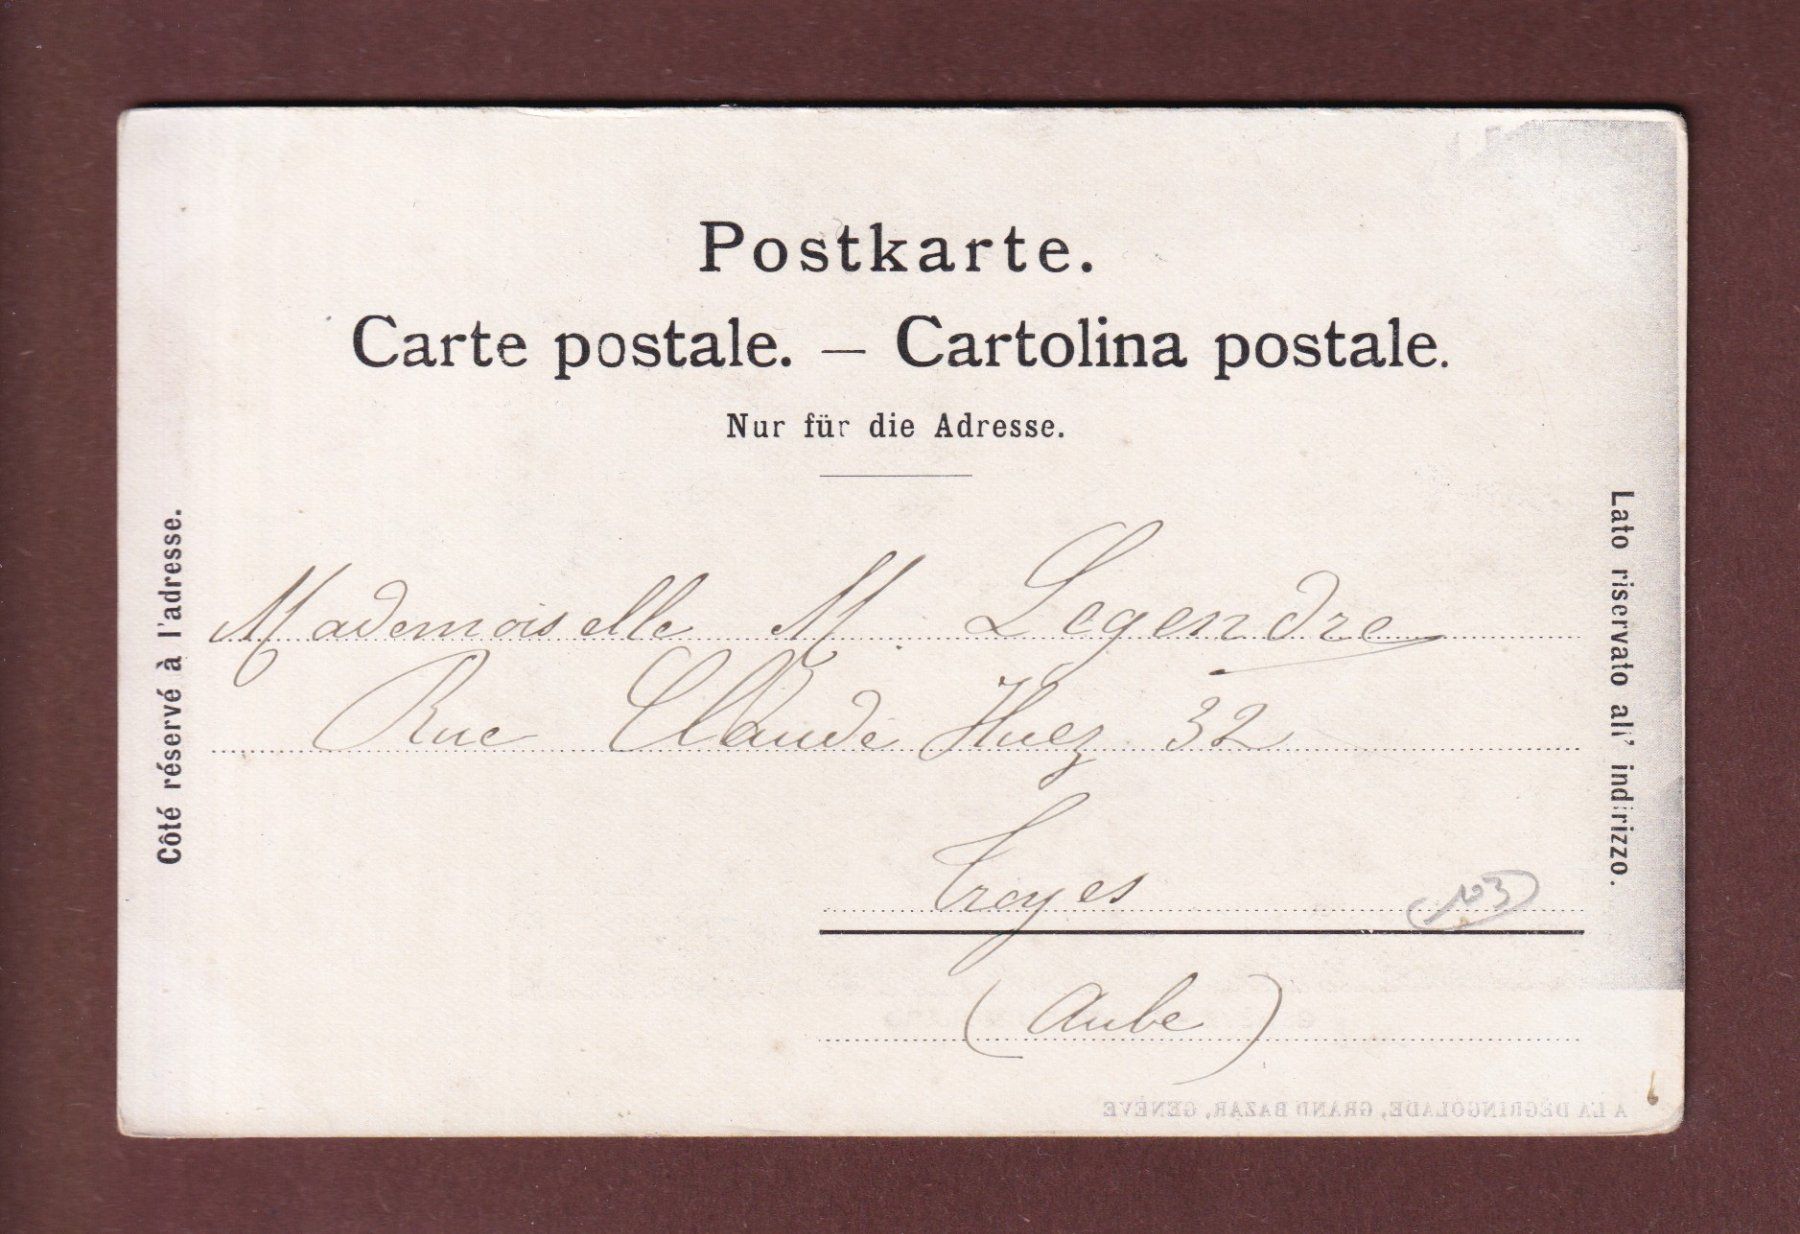 Postkarte.
Carte postale. — Cartolina postale.
Nur für die Adresse.
Côté réservé à l'adresse.
Lato riservato all' indirizzo.
Mademoiselle M. Legendre
Rue Claude Huez 32
Troyes
(103)
(Aube)
A LA DÉGRINGOLADE, GRAND BAZAR, GENÈVE